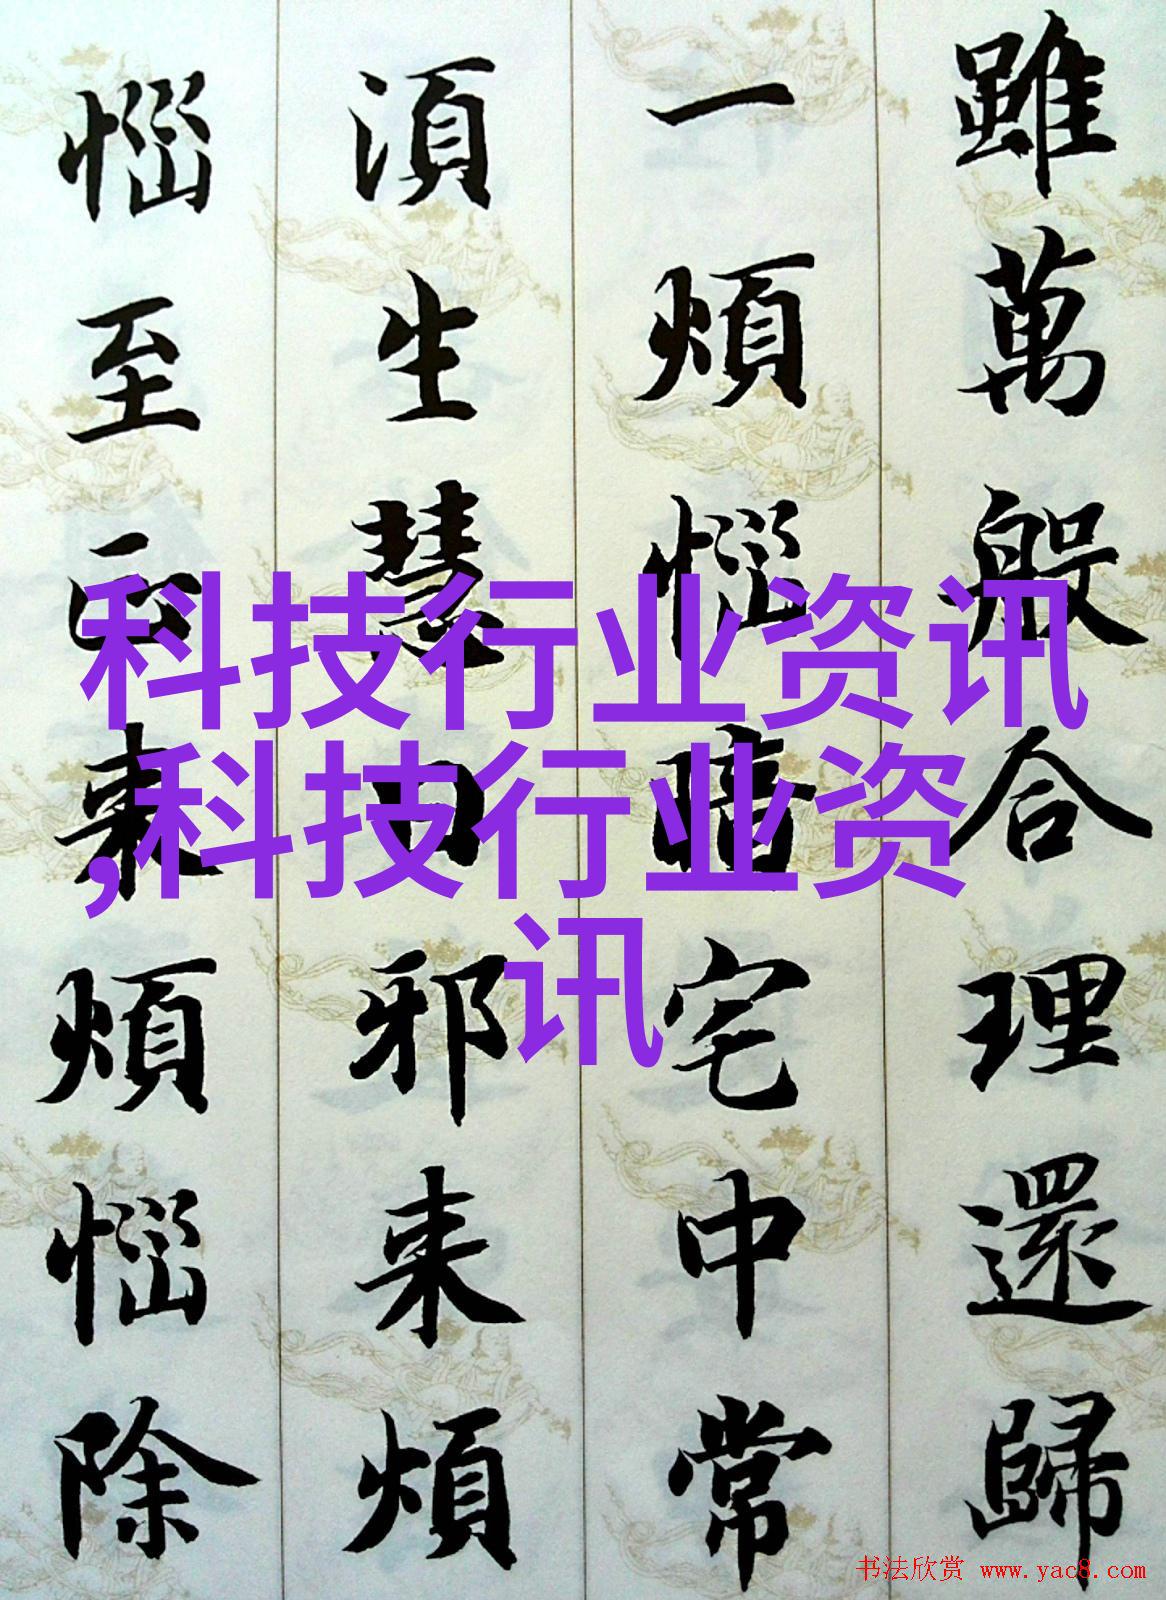 雖萬般合理還歸
一煩惱暗宅中常
須生慧日邪来煩
惱至正来煩惱除
科技行业资讯
,科技行业资
讯
书法欣赏 www.yac8.com